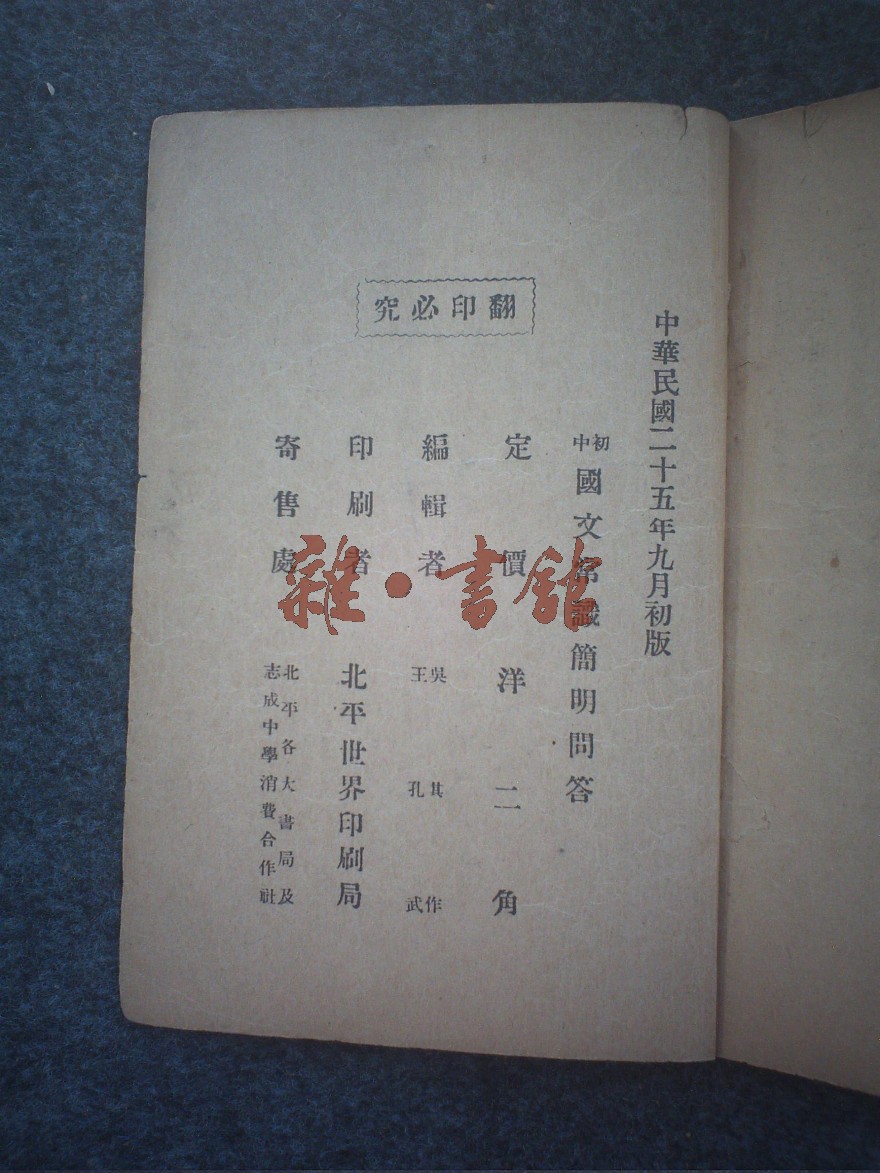 中華民國二十五年九月初版
初中國文常識簡明問答
定價洋二角
編輯者 吳其作
王孔武
印刷者 北平世界印刷局
寄售處 北平各大書局及
志成中學消費合作社
翻印必究
雜·書館